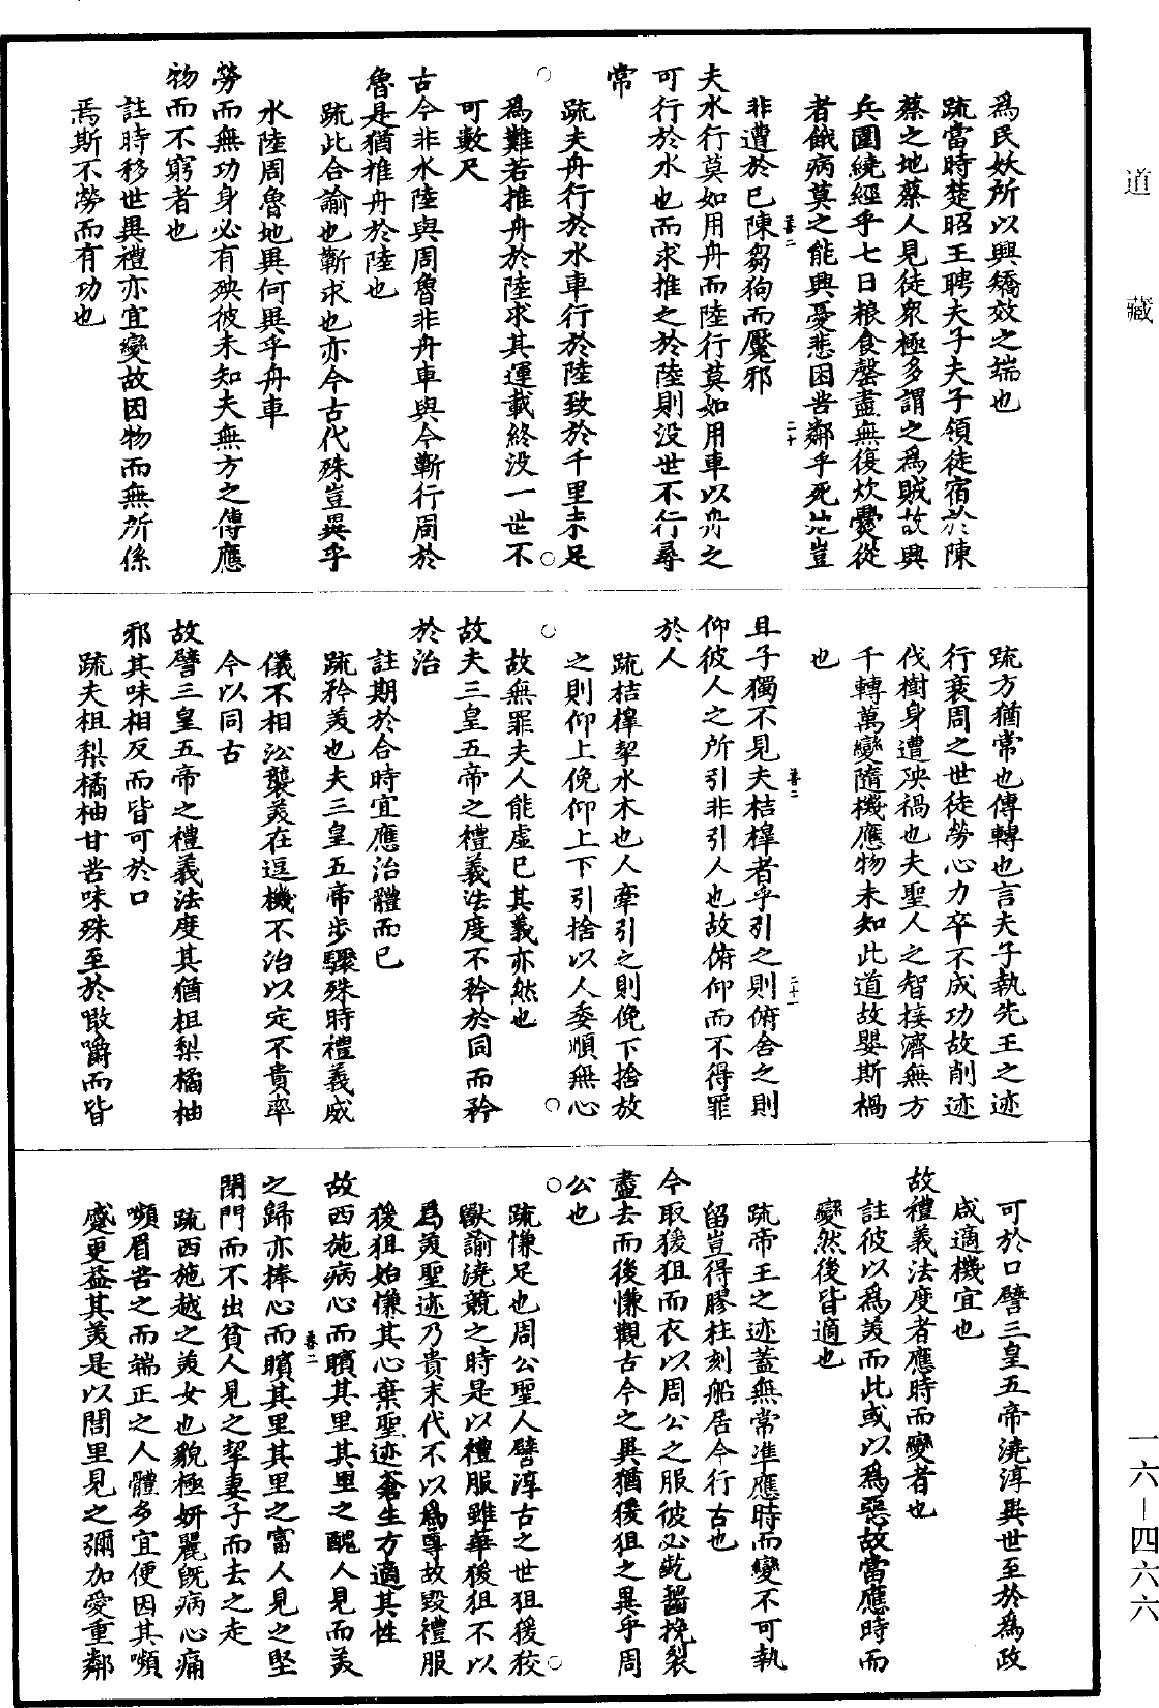 道藏
為民妖所以興矯效之端也
疏當時楚昭王聘夫子夫子領徒宿於陳
蔡之地蔡人見徒衆極多謂之為賊故興
兵圍繞經乎七日粮食罄盡無復炊爨從
者餓病莫之能興憂悲困苦鄰乎死地豈
非遭於已陳芻狗而魘邪
夫水行莫如用舟而陸行莫如用車以舟之
可行於水也而求推之於陸則没世不行尋
常
疏夫舟行於水車行於陸致於千里未足
為難若推舟於陸求其運載終没一世不
可數尺
古今非水陸與周魯非舟車與今蘄行周於
魯是猶推舟於陸也
疏此合諭也蘄求也亦今古代殊豈異乎
水陸周魯地異何異乎舟車
勞而無功身必有殃彼未知夫無方之傳應
物而不窮者也
註時移世異禮亦宜變故因物而無所係
焉斯不勞而有功也
疏方猶常也傳轉也言夫子執先王之迹
行衰周之世徒勞心力卒不成功故削迹
伐樹身遭殃禍也夫聖人之智接濟無方
千轉萬變隨機應物未知此道故嬰斯禍
也
且子獨不見夫桔槔者乎引之則俯舍之則
仰彼人之所引非引人也故俯仰而不得罪
於人
疏桔槔挈水木也人牽引之則俛下捨放
之則仰上俛仰上下引捨以人委順無心
故無罪夫人能虛己其義亦然也
故夫三皇五帝之禮義法度不矜於同而矜
於治
註期於合時宜應治體而已
疏矜美也夫三皇五帝步驟殊時禮義威
儀不相沿襲美在逗機不治以定不貴率
今以同古
故譬三皇五帝之禮義法度其猶柤梨橘柚
邪其味相反而皆可於口
疏夫柤梨橘柚甘苦味殊至於噉嚼而皆
可於口譬三皇五帝澆淳異世至於為政
咸適機宜也
故禮義法度者應時而變者也
註彼以為美而此或以為惡故當應時而
變然後皆適也
疏帝王之迹蓋無常準應時而變不可執
留豈得膠柱刻船居今行古也
今取猨狙而衣以周公之服彼必齕齧挽裂
盡去而後慊觀古今之異猶猨狙之異乎周
公也
疏慊足也周公聖人譬淳古之世狙猨狡
獸諭澆競之時是以禮服雖華猨狙不以
為美聖迹乃貴末代不以為尊故毀禮服
猨狙始慊其心棄聖迹蒼生方適其性
故西施病心而矉其里其里之醜人見而美
之歸亦捧心而矉其里其里之富人見之堅
閉門而不出貧人見之挈妻子而去之走
疏西施越之美女也貌極妍麗既病心痛
嚬眉苦之而端正之人體多宜便因其嚬
蹙更益其美是以閭里見之彌加愛重鄰
一六－四六六